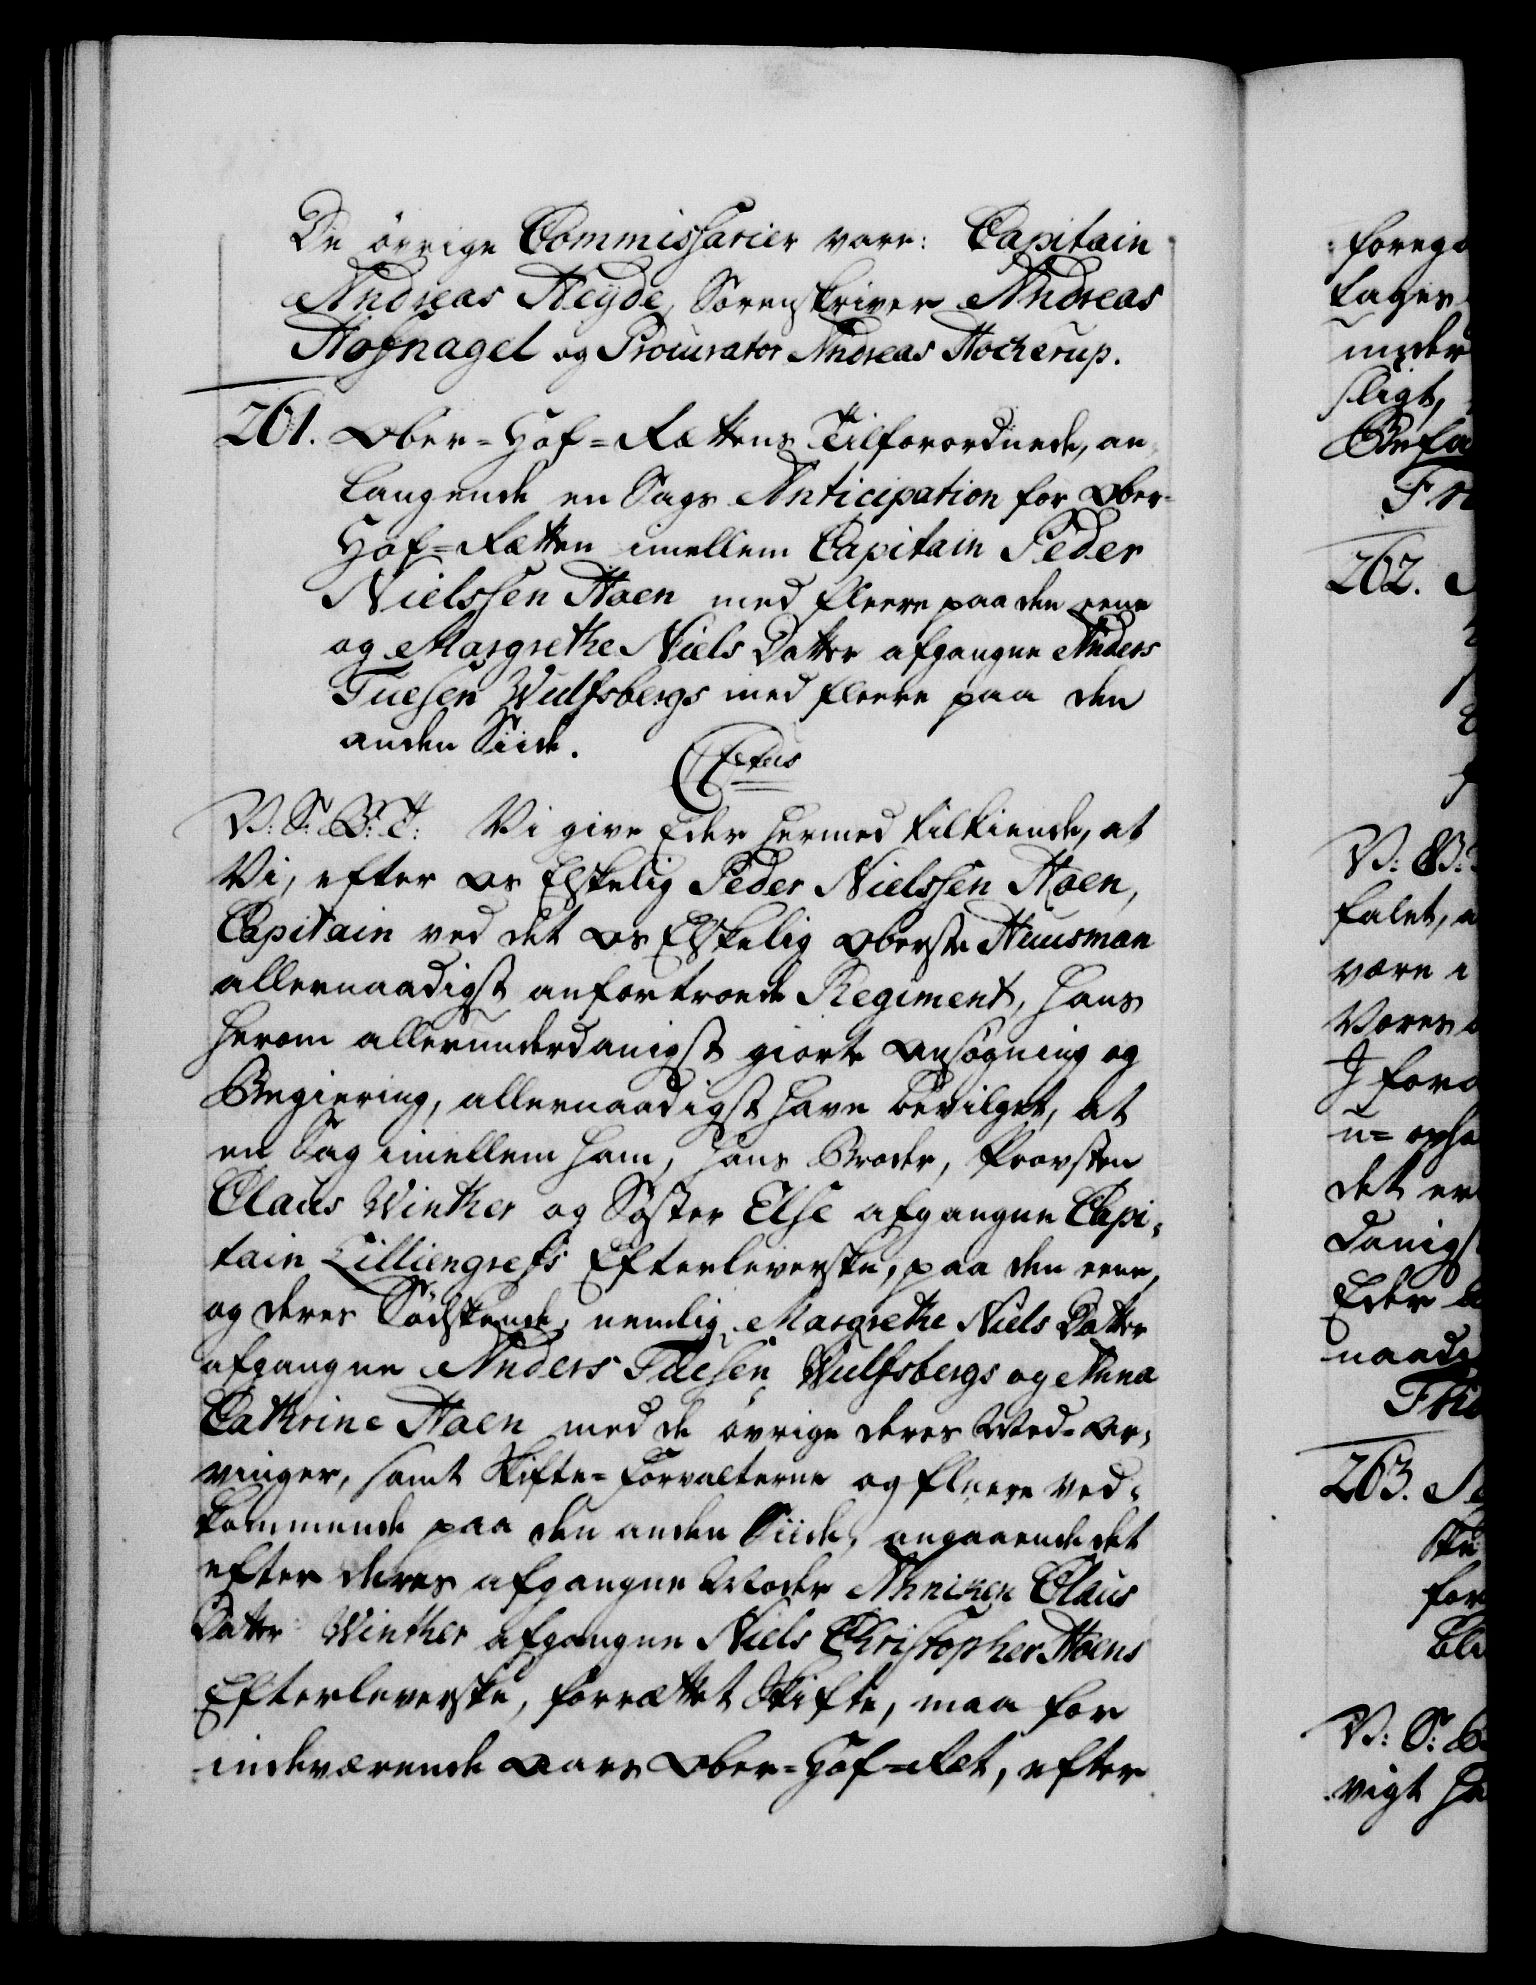 De övrige Commissarier vare: Capitain
Andreas Heyde, Sorenskriver Andreas
Hofnagel og Procurator Andreas Hocherup.
261. Ober-Hof-Rettens Tilforordnede, an-
langende en Sags Anticipation for Ober-
Hof-Retten imellem Capitain Peder
Nielssen Hoen med fleere paa den eene
og Margrethe Niels Datter afgangne Anders
Tuesen Wulfsbergs med fleere paa den
anden Siide.
V: S: B: T: Vi give Eder hermed tilkiende, at
Vi, efter Os Elskelig Peder Nielssen Hoen,
Capitain ved det Os Elskelig Oberste Huusman
allernaadigst anfortroede Regiment, hans
herom allerunderdanigst giorte Ansøgning og
Begiering, allernaadigst have bevilget, at
en Sag imellem ham, hans Broder, Provsten
Claus Winther og Søster Else afgangne Capi-
tain Lilliengrefs Efterleverske, paa den eene,
og deres Södskende, nemlig Margrethe Niels Datter
afgangne Anders Tuesen Wulfsbergs og Anna
Cathrine Hoen med de övrige deres Med-Ar-
vinger, samt Skifte-Forvalterne og fleere ved-
kommende paa den anden Siide, angaaende det
efter deres afgangne Moder Anniken Claus
Datter Winther afgangne Niels Christopher Hoens
Efterleverske, forrettet Skifte, maa for
indeværende Aars Ober-Hof-Ret, efter
forego
tages
under
sligt,
Befa
Fri
262.
V: B:
falet, a
være i
Vores
J fora
det er
danigs
Eder
naadi
263.
for
V: S: B
vigt ha